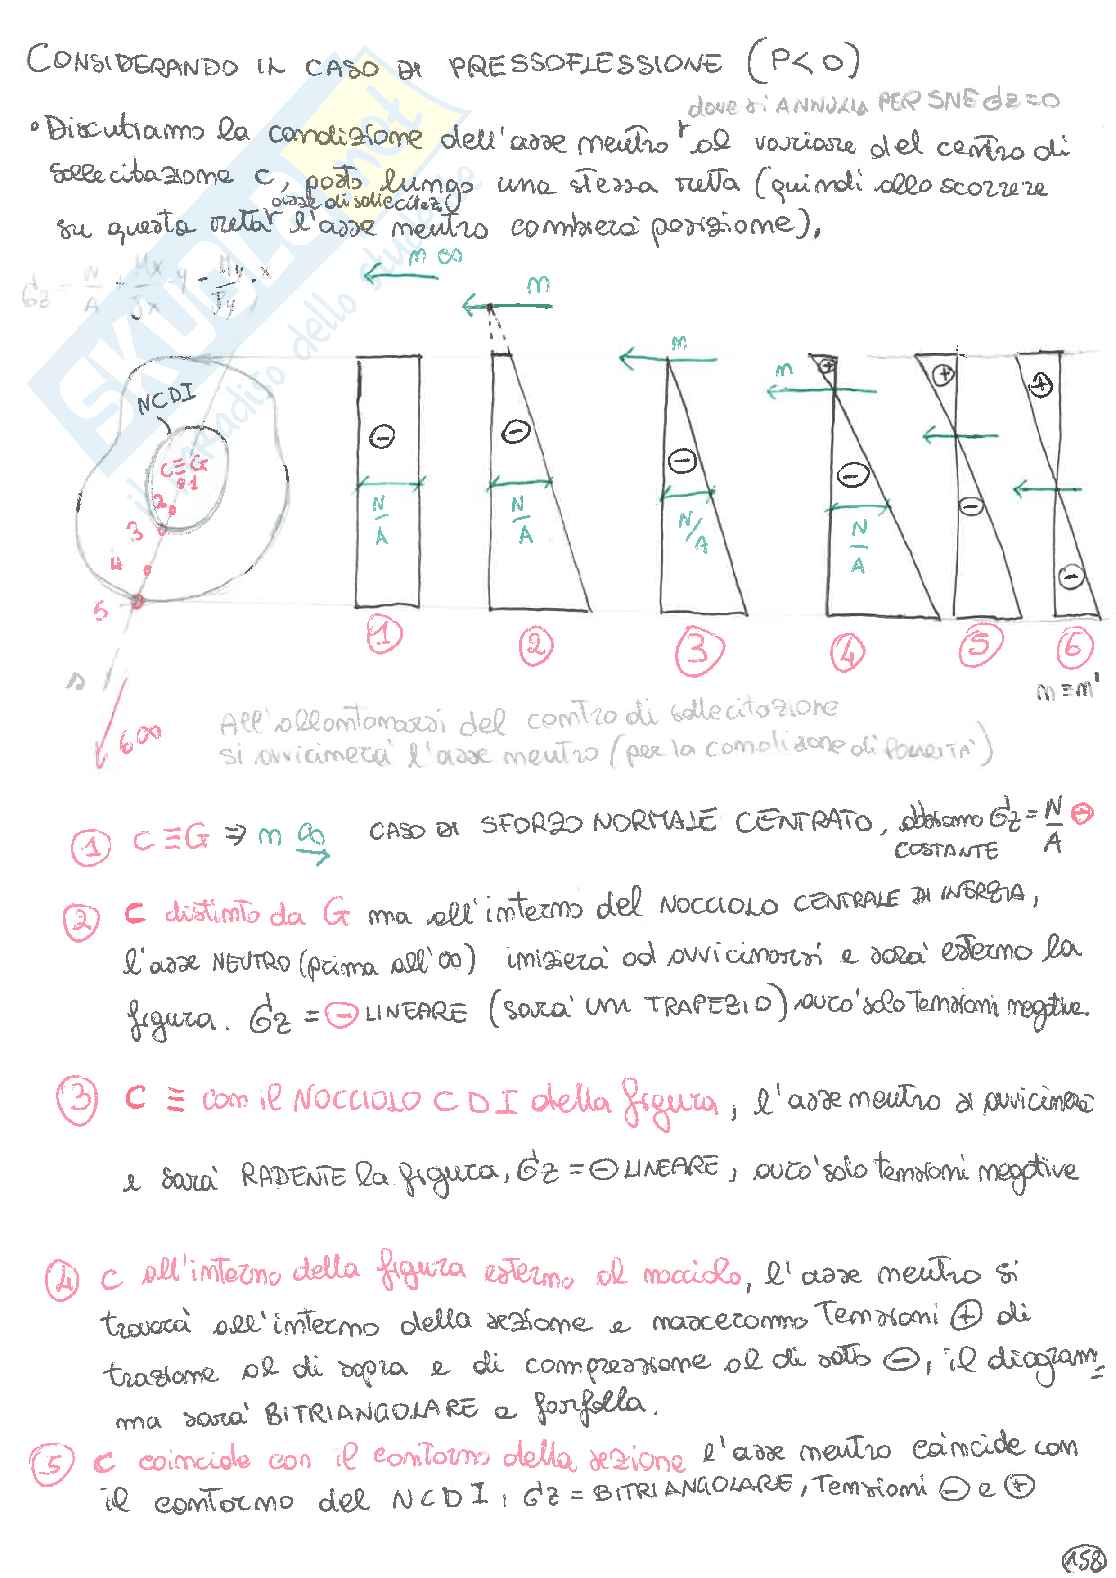 CONSIDERANDO IL CASO DI PRESSOFLESSIONE (P<0)
dove si ANNULLA PER SNE σz=0
• Discutiamo la condizione dell'asse neutro al variare del centro di
sollecitazione C, posto lungo una stessa retta (quindi allo scorrere
asse di sollecitaz.
su questa retta l'asse neutro cambierà posizione).
SKUOLA.net
il paradiso dello studente
σz = N/A + Mx/Jx y - My/Jy x
n ∞
n
n
n
NCDI
C≡G
1
2
3
4
5
s
6∞
⊖
⊖
⊖
⊕
⊖
⊕
⊖
⊕
⊖
N/A
N/A
N/A
N/A
① ② ③ ④ ⑤ ⑥
n≡n'
All'allontanarsi del centro di sollecitazione
si avvicinerà l'asse neutro (per la condizione di POLARITÀ)
① C≡G ⇒ n ∞ CASO DI SFORZO NORMALE CENTRATO, abbiamo σz = N/A ⊖
COSTANTE
② C distinto da G ma all'interno del NOCCIOLO CENTRALE DI INERZIA,
l'asse NEUTRO (prima all'∞) inizierà ad avvicinarsi e sarà esterno la
figura. σz = ⊖ LINEARE (sarà un TRAPEZIO) avrò solo Tensioni negative.
③ C ≡ con il NOCCIOLO C D I della figura, l'asse neutro si avvicinerà
e sarà RADENTE la figura, σz = ⊖ LINEARE, avrò solo tensioni negative
④ C all'interno della figura esterno al nocciolo, l'asse neutro si
troverà all'interno della sezione e nasceranno Tensioni ⊕ di
trazione al di sopra e di compressione al di sotto ⊖, il diagram=
ma sarà BITRIANGOLARE a farfalla.
⑤ C coincide con il contorno della sezione l'asse neutro coincide con
il contorno del NCDI, σz = BITRIANGOLARE, Tensioni ⊖ e ⊕
158